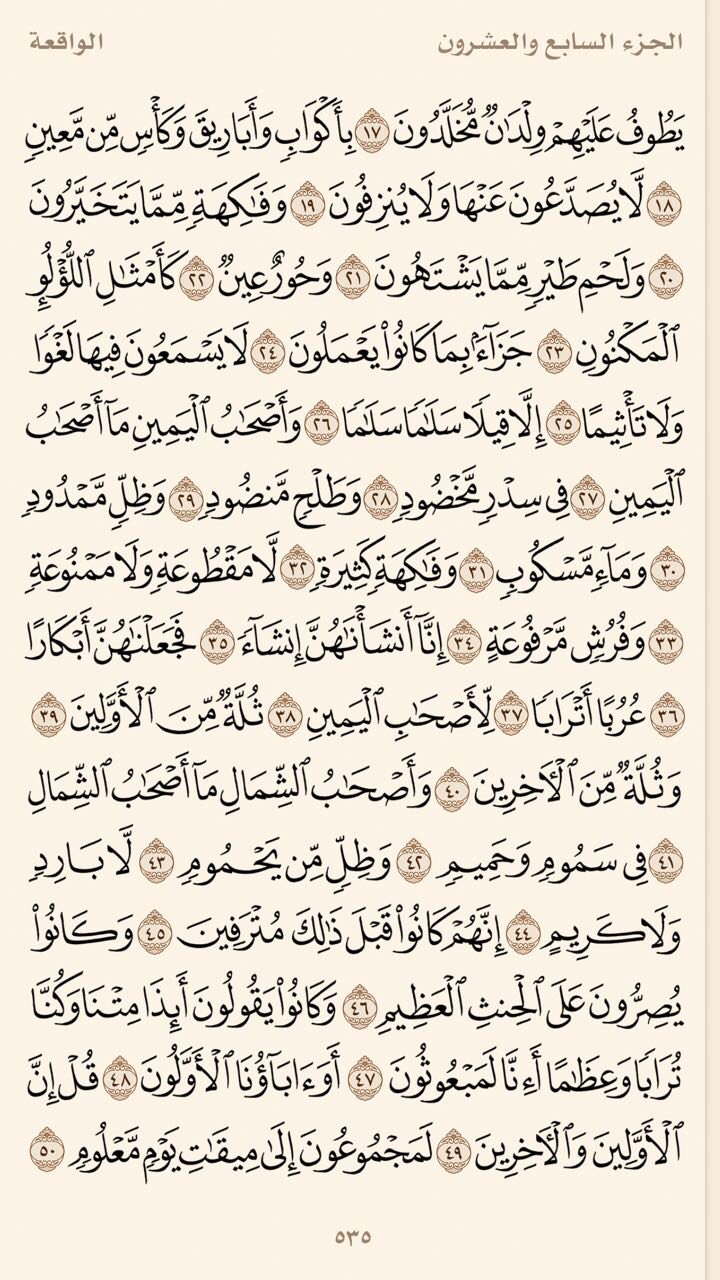 الجزء السابع والعشرون
الواقعة
يَطُوفُ عَلَيْهِمْ وِلْدَٰنٌ مُّخَلَّدُونَ ١٧ بِأَكْوَابٍ وَأَبَارِيقَ وَكَأْسٍ مِّن مَّعِينٍ
١٨ لَّا يُصَدَّعُونَ عَنْهَا وَلَا يُنزِفُونَ ١٩ وَفَٰكِهَةٍ مِّمَّا يَتَخَيَّرُونَ
٢٠ وَلَحْمِ طَيْرٍ مِّمَّا يَشْتَهُونَ ٢١ وَحُورٌ عِينٌ ٢٢ كَأَمْثَٰلِ ٱللُّؤْلُؤِ
ٱلْمَكْنُونِ ٢٣ جَزَآءًۢ بِمَا كَانُوا۟ يَعْمَلُونَ ٢٤ لَا يَسْمَعُونَ فِيهَا لَغْوًا
وَلَا تَأْثِيمًا ٢٥ إِلَّا قِيلًا سَلَٰمًا سَلَٰمًا ٢٦ وَأَصْحَٰبُ ٱلْيَمِينِ مَآ أَصْحَٰبُ
ٱلْيَمِينِ ٢٧ فِى سِدْرٍ مَّخْضُودٍ ٢٨ وَطَلْحٍ مَّنضُودٍ ٢٩ وَظِلٍّ مَّمْدُودٍ
٣٠ وَمَآءٍ مَّسْكُوبٍ ٣١ وَفَٰكِهَةٍ كَثِيرَةٍ ٣٢ لَّا مَقْطُوعَةٍ وَلَا مَمْنُوعَةٍ
٣٣ وَفُرُشٍ مَّرْفُوعَةٍ ٣٤ إِنَّآ أَنشَأْنَٰهُنَّ إِنشَآءً ٣٥ فَجَعَلْنَٰهُنَّ أَبْكَارًا
٣٦ عُرُبًا أَتْرَابًا ٣٧ لِّأَصْحَٰبِ ٱلْيَمِينِ ٣٨ ثُلَّةٌ مِّنَ ٱلْأَوَّلِينَ ٣٩
وَثُلَّةٌ مِّنَ ٱلْـَٔاخِرِينَ ٤٠ وَأَصْحَٰبُ ٱلشِّمَالِ مَآ أَصْحَٰبُ ٱلشِّمَالِ
٤١ فِى سَمُومٍ وَحَمِيمٍ ٤٢ وَظِلٍّ مِّن يَحْمُومٍ ٤٣ لَّا بَارِدٍ
وَلَا كَرِيمٍ ٤٤ إِنَّهُمْ كَانُوا۟ قَبْلَ ذَٰلِكَ مُتْرَفِينَ ٤٥ وَكَانُوا۟
يُصِرُّونَ عَلَى ٱلْحِنثِ ٱلْعَظِيمِ ٤٦ وَكَانُوا۟ يَقُولُونَ أَئِذَا مِتْنَا وَكُنَّا
تُرَابًا وَعِظَٰمًا أَءِنَّا لَمَبْعُوثُونَ ٤٧ أَوَءَابَآؤُنَا ٱلْأَوَّلُونَ ٤٨ قُلْ إِنَّ
ٱلْأَوَّلِينَ وَٱلْـَٔاخِرِينَ ٤٩ لَمَجْمُوعُونَ إِلَىٰ مِيقَٰتِ يَوْمٍ مَّعْلُومٍ ٥٠
٥٣٥